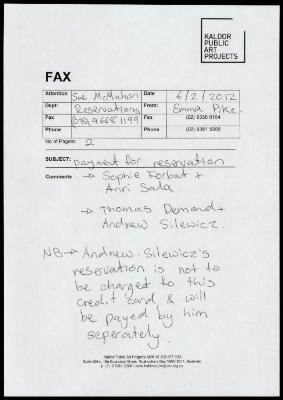 KALDOR
PUBLIC
ART
PROJECTS
FAX
Attention Sue McMahon Date 6/2/2012
Dept: Reservations From: Emma Pike
Fax (03) 9668 1199 Fax (02) 9356 8164
Phone Phone (02) 9361 5088
No of Pages: 2
SUBJECT: payment for reservation
Comments → Sophie Forbat +
Anri Sala
→ Thomas Demand +
Andrew Silewicz.
NB → Andrew Silewicz's
reservation is not to
be charged to this
credit card & will
be payed by him
seperately.
Kaldor Public Art Projects